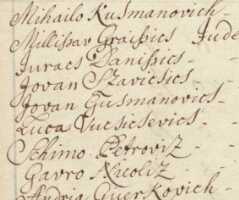 Mihailo Kusmanovich -
Millissav Graissics Jude
Juracs Danissics -
Jovan Szavicsics -
Jovan Gusmanovics -
Luca Vucsicsevics -
Schimo Petroviz -
Gavro Nicoliz -
Andria Querkovich -